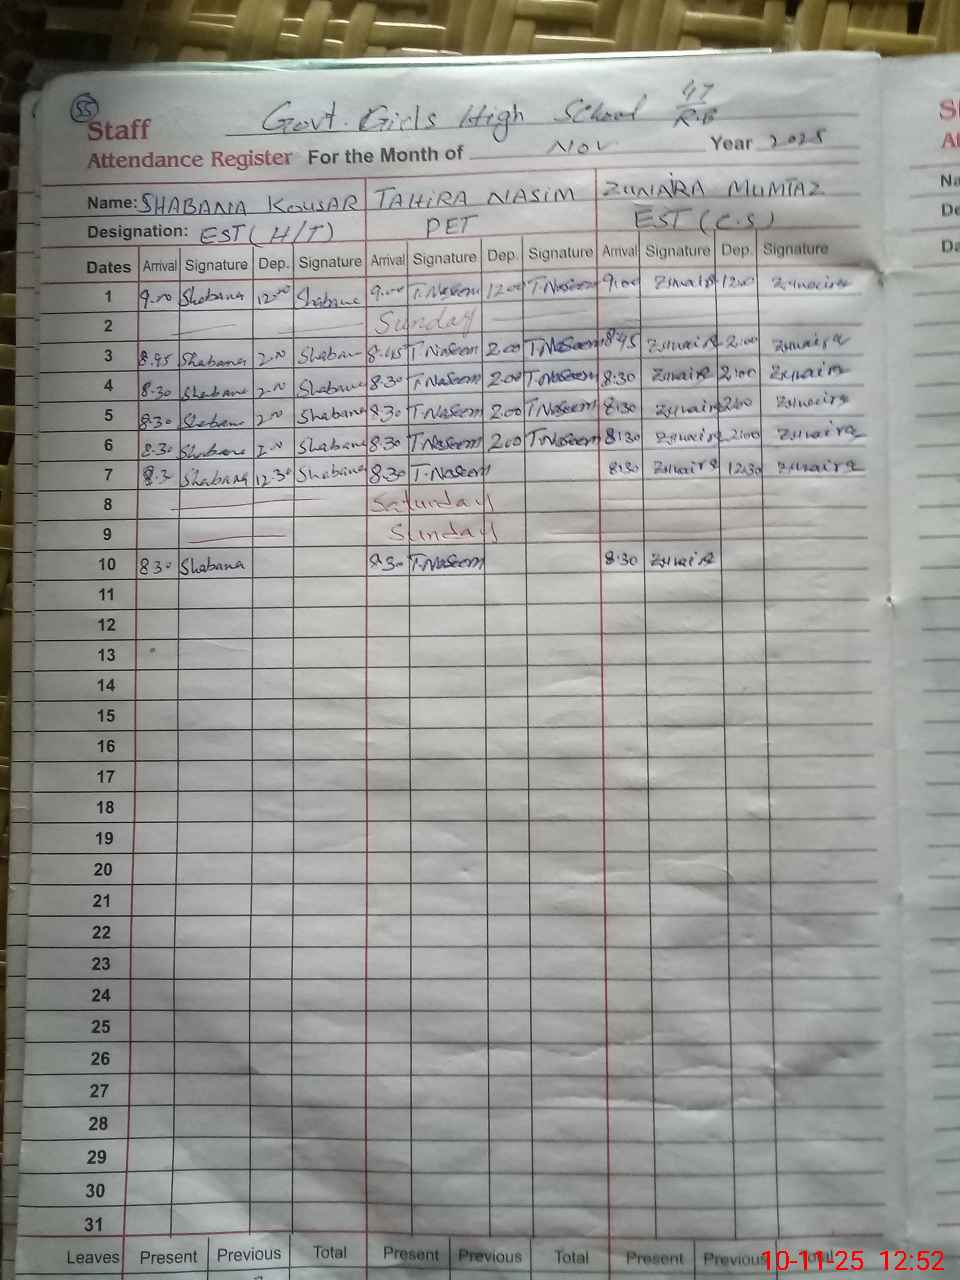 55
Staff Govt. Girls High School 47/R.B
Attendance Register For the Month of Nov Year 2025
Name: SHABANA KOUSAR TAHIRA NASIM ZUNAIRA MUMTAZ
Designation: EST (H/T) PET EST (C.S)
Dates Arrival Signature Dep. Signature Arrival Signature Dep. Signature Arrival Signature Dep. Signature
1 9.00 Shabana 12.00 Shabana 9.00 T.Naseem 12.00 T.Naseem 9:00 Zunaira 12:00 Zunaira
2 Sunday
3 8.45 Shabana 2.00 Shabana 8.45 T.Naseem 2.00 T.Naseem 8:45 Zunaira 2:00 Zunaira
4 8.30 Shabana 2.00 Shabana 8.30 T.Naseem 2.00 T.Naseem 8:30 Zunaira 2:00 Zunaira
5 8.30 Shabana 2.00 Shabana 8.30 T.Naseem 2.00 T.Naseem 8:30 Zunaira 2:00 Zunaira
6 8.30 Shabana 2.00 Shabana 8.30 T.Naseem 2.00 T.Naseem 8:30 Zunaira 2:00 Zunaira
7 8.30 Shabana 12.30 Shabana 8.30 T.Naseem 8:30 Zunaira 12:30 Zunaira
8 Saturday
9 Sunday
10 8.30 Shabana 8.30 T.Naseem 8:30 Zunaira
11
12
13
14
15
16
17
18
19
20
21
22
23
24
25
26
27
28
29
30
31
Leaves Present Previous Total Present Previous Total Present Previous Total
10-11-25 12:52